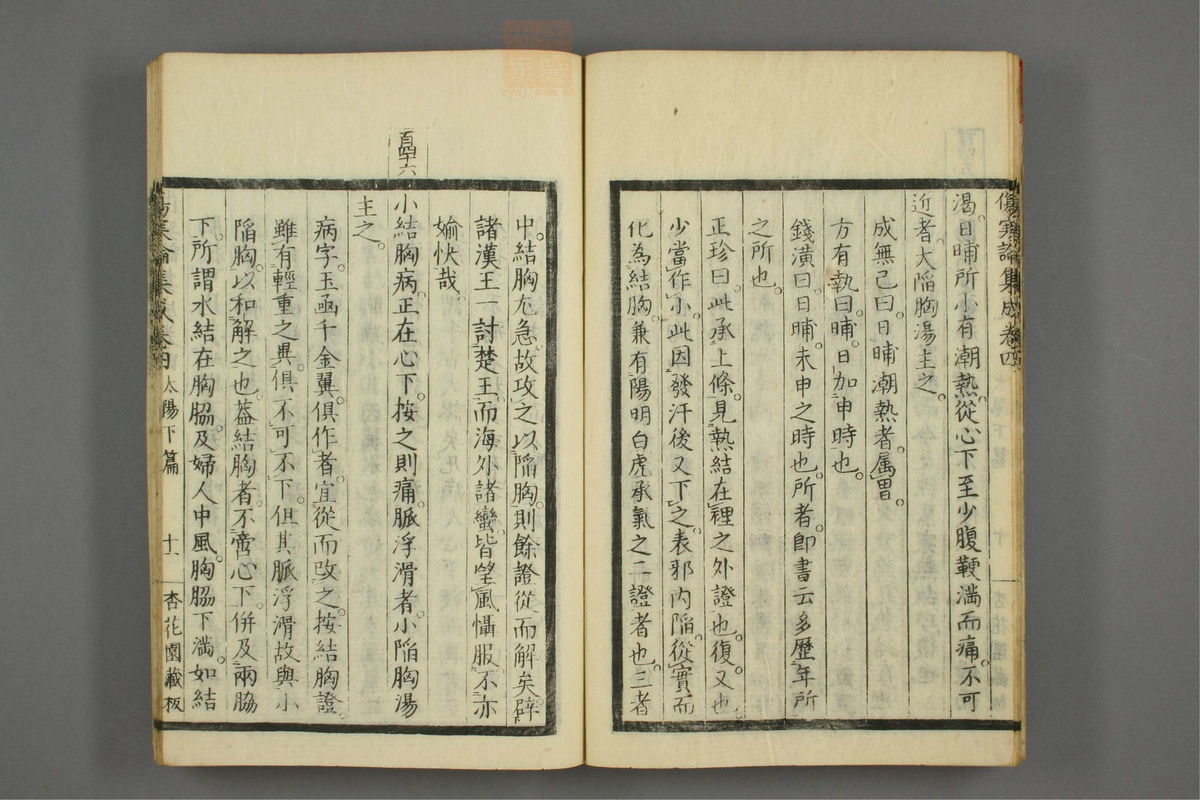 渴。日晡所小有潮熱。從心下至少腹鞕滿而痛。不可
近者。大陷胸湯主之。
成無己曰。日晡潮熱者。属胃。
方有執曰。晡。日加申時也。
錢潢曰。日晡未申之時也。所者。即書云多歷年所
之所也。
正珍曰。此承上條。見熱結在裡之外證也。復。又也。
少當作小。此因發汗後又下之。表邪内陷。從實而
化為結胸。兼有陽明白虎承氣之二證者也。三者
傷寒論集成 卷四
中。結胸尢急。故攻之以陷胸。則餘證從而解矣。辟
諸漢王一討楚王。而海外諸蠻。皆望風懾服。不亦
婾快哉。
百四十六
小結胸病。正在心下。按之則痛。脈浮滑者。小陷胸湯
主之。
病字。玉函千金翼。俱作者。宜從而改之。按結胸證。
雖有輕重之異。俱不可不下。但其脈浮滑。故與小
陷胸。以和解之也。蓋結胸者。不啻心下。併及兩脇
下。所謂水結在胸脇。及婦人中風。胸脇下滿。如結
傷寒論集成 卷四 太陽下篇 十一 杏花園藏板